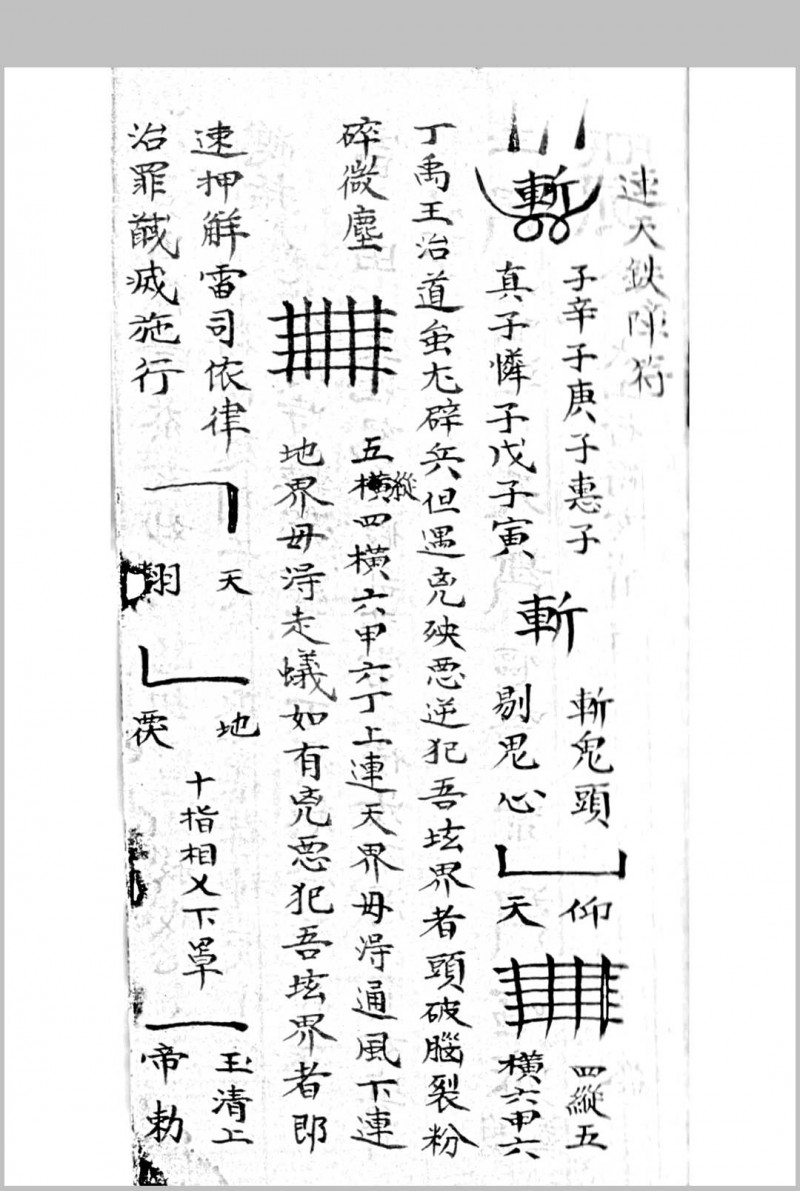 連天鉄陣符
斬
子辛子庚子惠子
真子憐子戊子寅
斬
斬鬼頭
剔鬼心
仰天
四縱五
橫六甲六
丁禹王治道蚩尤辟兵但遇兇殃惡逆犯吾垓界者頭破腦裂粉
碎微塵
五縱四橫六甲六丁上連天界毋得通風下連
地界毋得走蟻如有兇惡犯吾垓界者即
速押觧雷司依律
治罪馘滅施行
天翔
地
十指相乂下罩
玉清上
帝勅